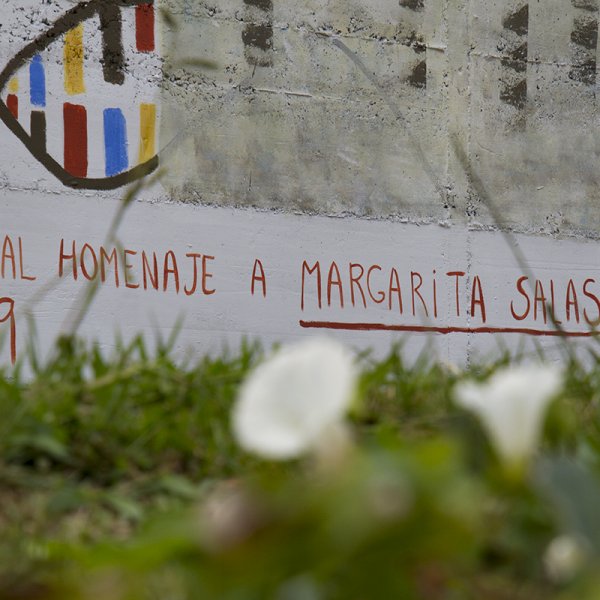 AL HOMENAJE A MARGARITA SALAS
9